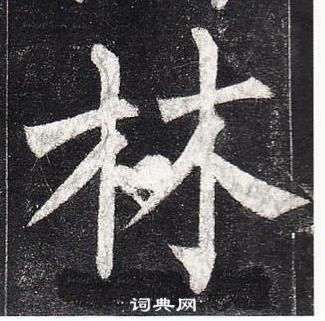 林
词典网